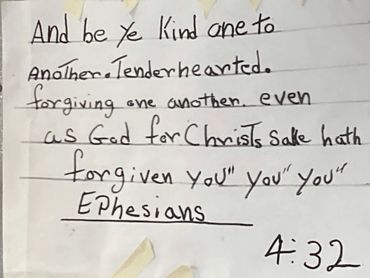 And be Ye Kind one to
Another. Tenderhearted.
forgiving one another. even
as God for Christs sake hath
forgiven you" you" you"
EPhesians
4:32